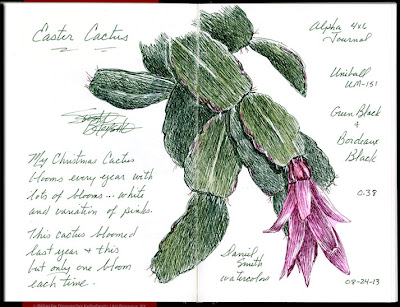 Easter Cactus
My Christmas Cactus
blooms every year with
lots of blooms... white
and variation of pinks.
This cactus bloomed
last year & this
but only one bloom
each time.
Alpha 4x6
Journal
Uniball
UM-151
Green Black
&
Bordeaux
Black
0.38
Daniel
Smith
watercolors
08-24-13